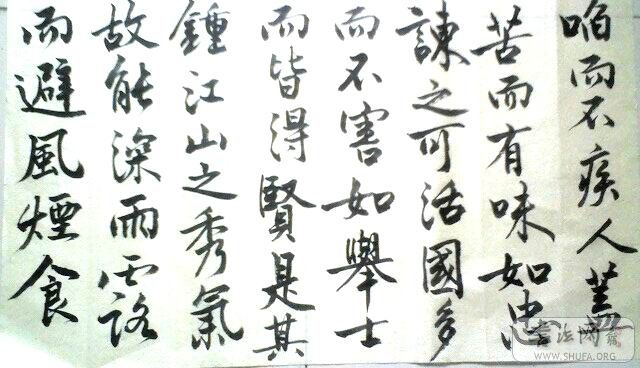 啗而不疾人蓋
苦而有味如忠
諫之可活國多
而不害如舉士
而皆得賢是其
鍾江山之秀氣
故能深雨露
而避風煙食
WWW.SHUFA.ORG